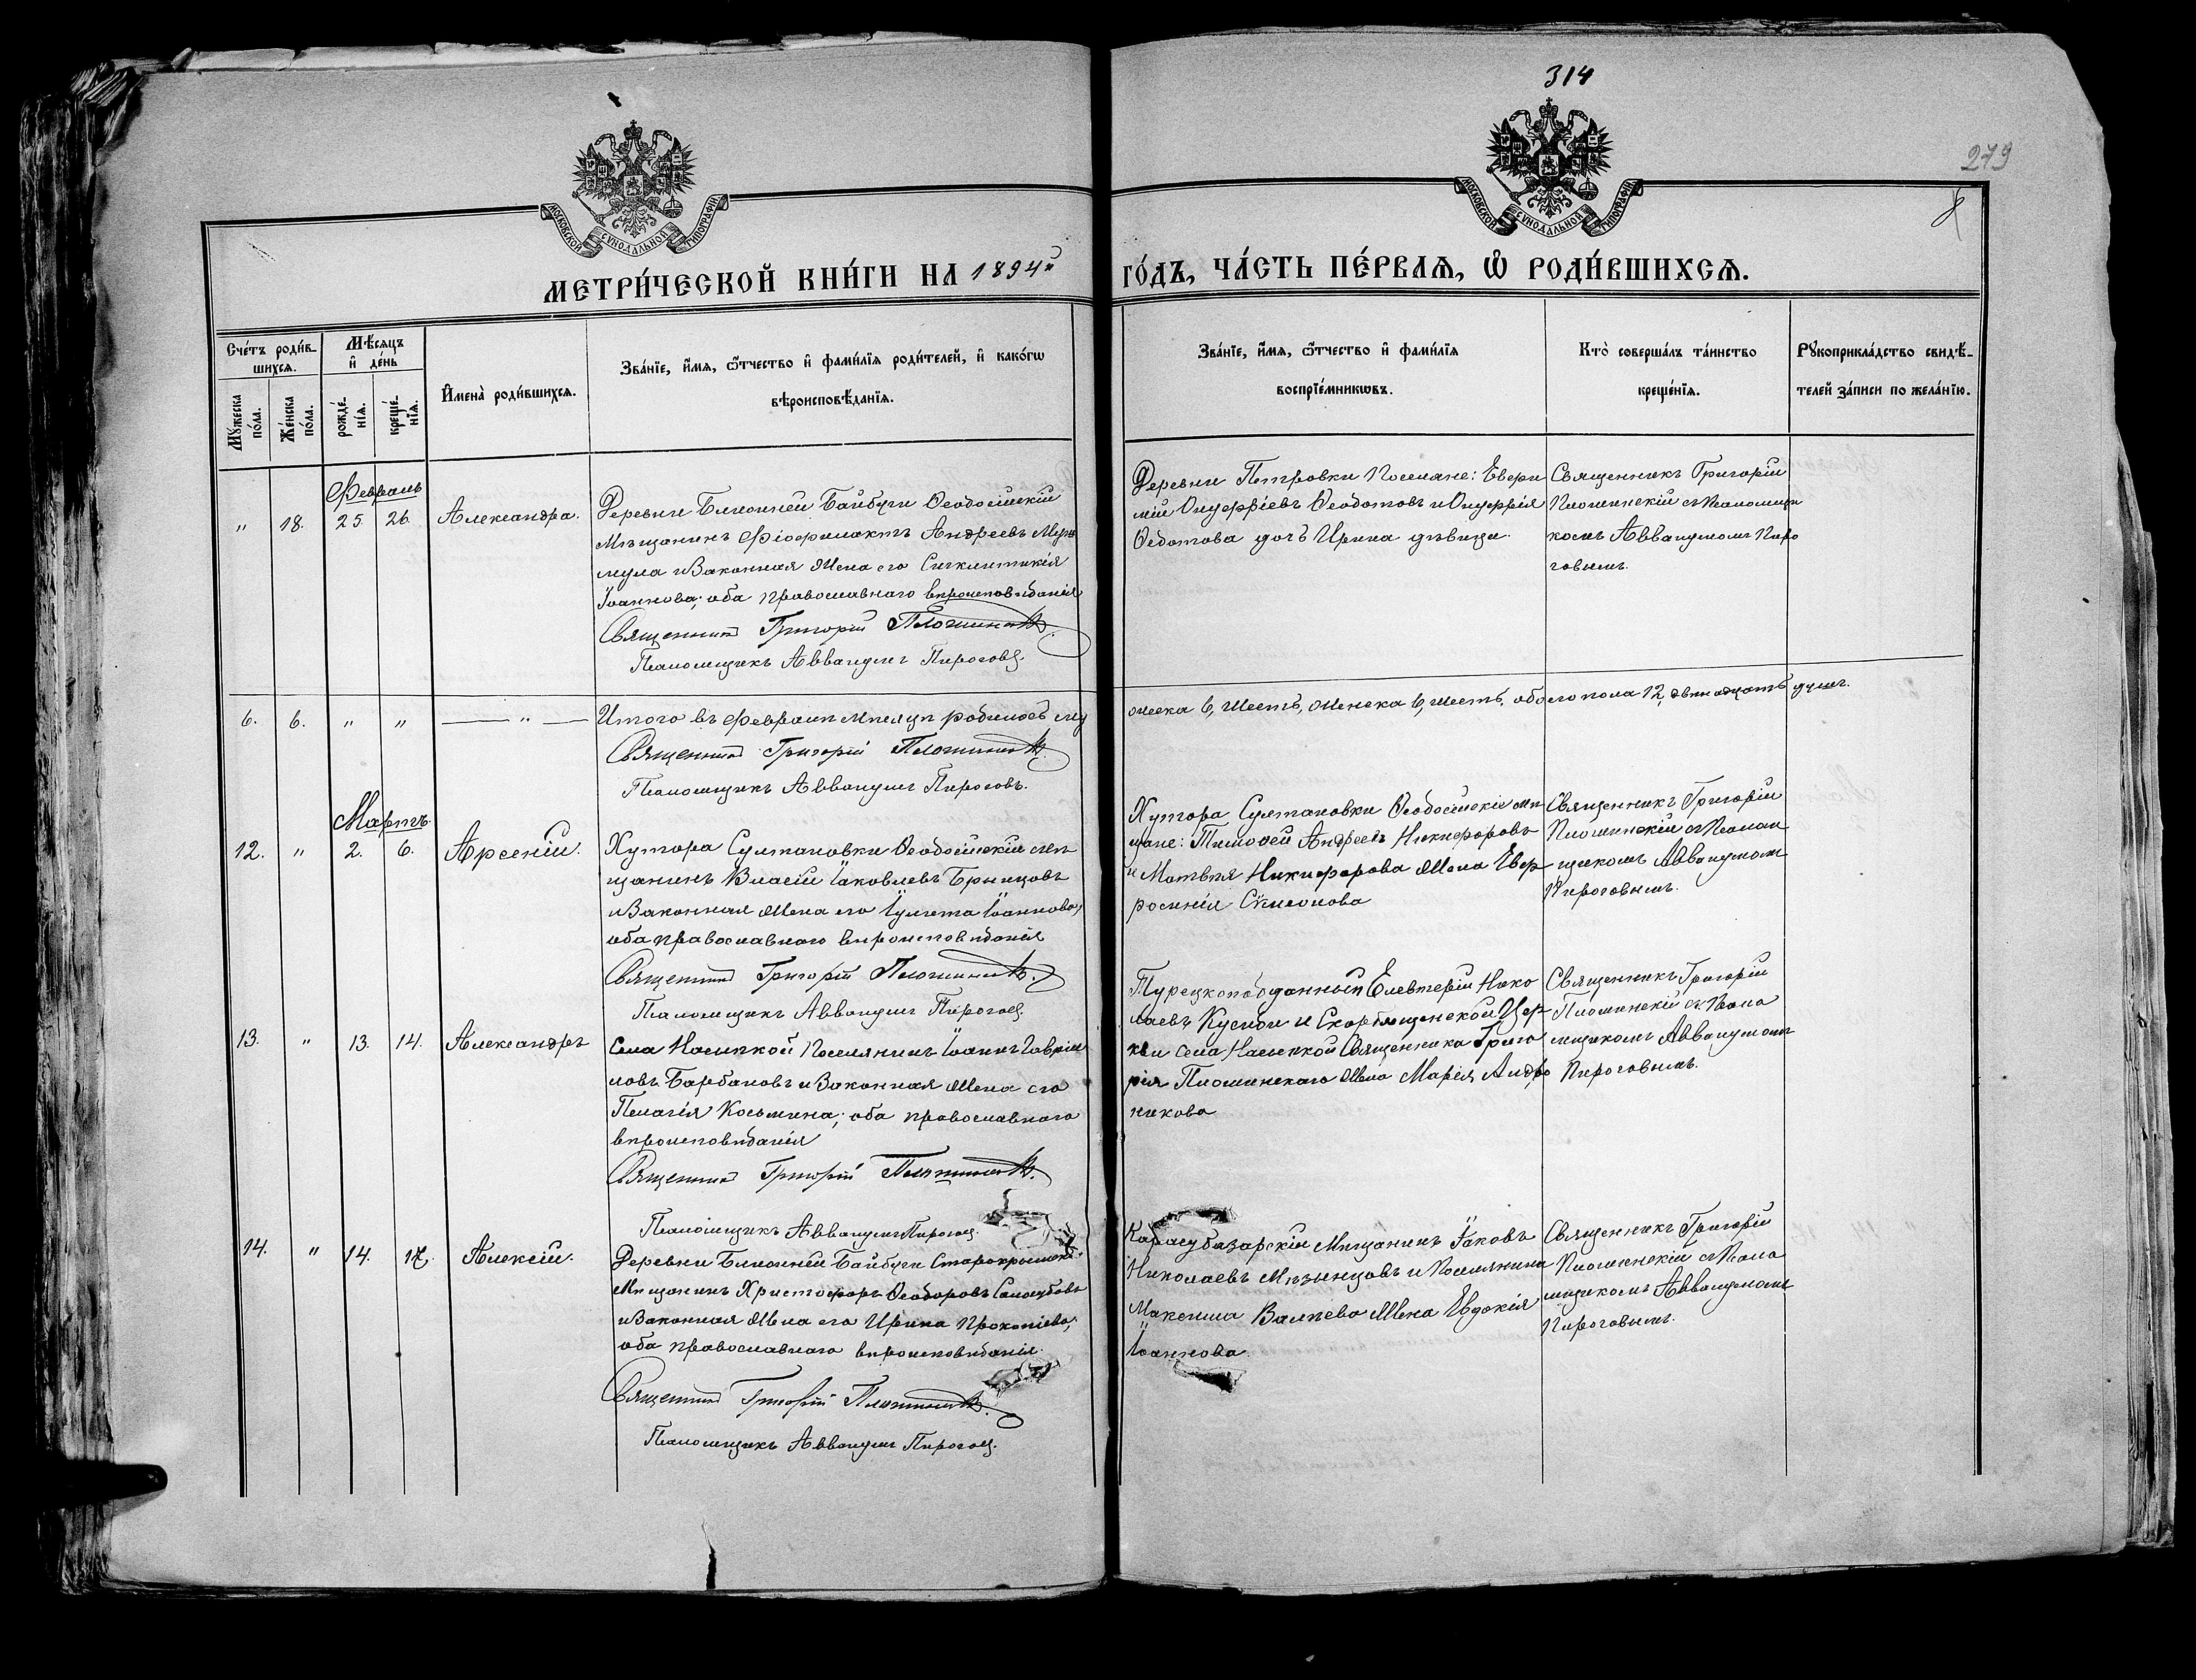 314
279
МОСКОВСКОЙ СѴНОДАЛЬНОЙ ТИПОГРАФІИ
МОСКОВСКОЙ СѴНОДАЛЬНОЙ ТИПОГРАФІИ
МЕТРИ́ЧЕСКОЙ КНИ́ГИ НА 1894й
ГО́ДЪ, ЧА́СТЬ ПЕ́РВАѦ, Ѿ РОДИ́ВШИХСѦ.
Сче́тъ роди́в-
шихсѧ.
Мꙋ́жеска по́ла.
Же́нска по́ла.
Мѣ́сѧцъ
и҆ де́нь
рожде́-
нїѧ.
креще́-
нїѧ.
И҆мена̀ роди́вшихсѧ.
Зва́нїе, и҆́мѧ, ѻ҆́тчество и҆ фами́лїѧ роди́телей, и҆ како́гѡ
вѣроисповѣ́данїѧ.
Зва́нїе, и҆́мѧ, ѻ҆́тчество и҆ фами́лїѧ
воспрїе́мникѡвъ.
Кто̀ соверша́лъ та́инство
креще́нїѧ.
Рꙋкоприкла́дство свидѣ́-
телей за́писи по жела́нїю.
Февраль
" 18. 25. 26. Александра.
Деревни Ближней Байбуги Ѳеодосійскій
Мѣщанинъ Андреевъ
и Законная Жена его Сигклитикія
Іоаннова; оба православнаго вѣроисповѣданія
Священникъ Григорій
Псаломщикъ Аввакумъ Пироговъ.
Деревни Петровки Поселяне: Евфи
мій Онуфріевъ Ѳеодотовъ и Онуфрія
Ѳедотова дочь Ирина дѣвица.
Священникъ Григорій
съ Псаломщи
комъ Аввакумомъ Пиро
говымъ.
6. 6. " " — " —
Итого въ Февралѣ мѣсяцѣ родилось му
жеска 6, шесть, женска 6, шесть, обоего пола 12, двѣнадцать душъ.
Священникъ Григорій
Псаломщикъ Аввакумъ Пироговъ.
Мартъ.
12. " 2. 6. Арсеній.
Хутора Султановки Ѳеодосійскій мѣ
щанинъ Власій Іаковлевъ Брынцовъ
и Законная Жена его Іулита Іоаннова,
оба православнаго вѣроисповѣданія
Священникъ Григорій
Псаломщикъ Аввакумъ Пироговъ.
Хутора Султановки Ѳеодосійскіе мѣ
щане: Тимоѳей Андреевъ Никифоровъ
и Матвѣя Никифорова Жена Евф
росинія Симонова
Священникъ Григорій
съ Псалом
щикомъ Аввакумомъ
Пироговымъ.
13. " 13. 14. Александръ
Села Насыпкой Поселянинъ Іоаннъ Гаврiи
ловъ Барбановъ и Законная Жена его
Пелагія Косьмина; оба православнаго
вѣроисповѣданія
Священникъ Григорій
Псаломщикъ Аввакумъ Пироговъ.
Турецкоподданный Елевтерій Нико
лаевъ и Скорбященской Цер
кви села Насыпкой Священника Григо
рія Жена Марія Андро
никова
Священникъ Григорій
съ Псало
мщикомъ Аввакумомъ
Пироговымъ.
14. " 14. 17. Алексій.
Деревни Ближней Байбуги Старокрымскій
Мѣщанинъ Христофоръ Ѳеодоровъ
и Законная Жена его Ирина Прокопіева;
оба православнаго вѣроисповѣданія.
Священникъ Григорій
Псаломщикъ Аввакумъ Пироговъ.
Карасубазарскій Мѣщанинъ Іаковъ
Николаевъ Мизинцовъ и Поселянина
Максима Валѣева Жена Евдокія
Іоаннова.
Священникъ Григорій
съ Псало
мщикомъ Аввакумомъ
Пироговымъ.